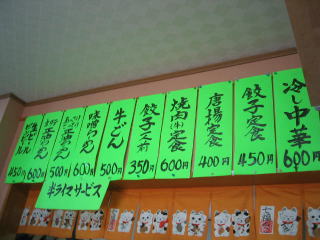 冷し中華
600円
餃子定食
450円
唐揚定食
400円
焼肉(牛)定食
600円
餃子一人前
350円
牛どん
500円
味噌らーめん
600円
正油らーめん
500円
600円
生ビール
450円
半ライスサービス